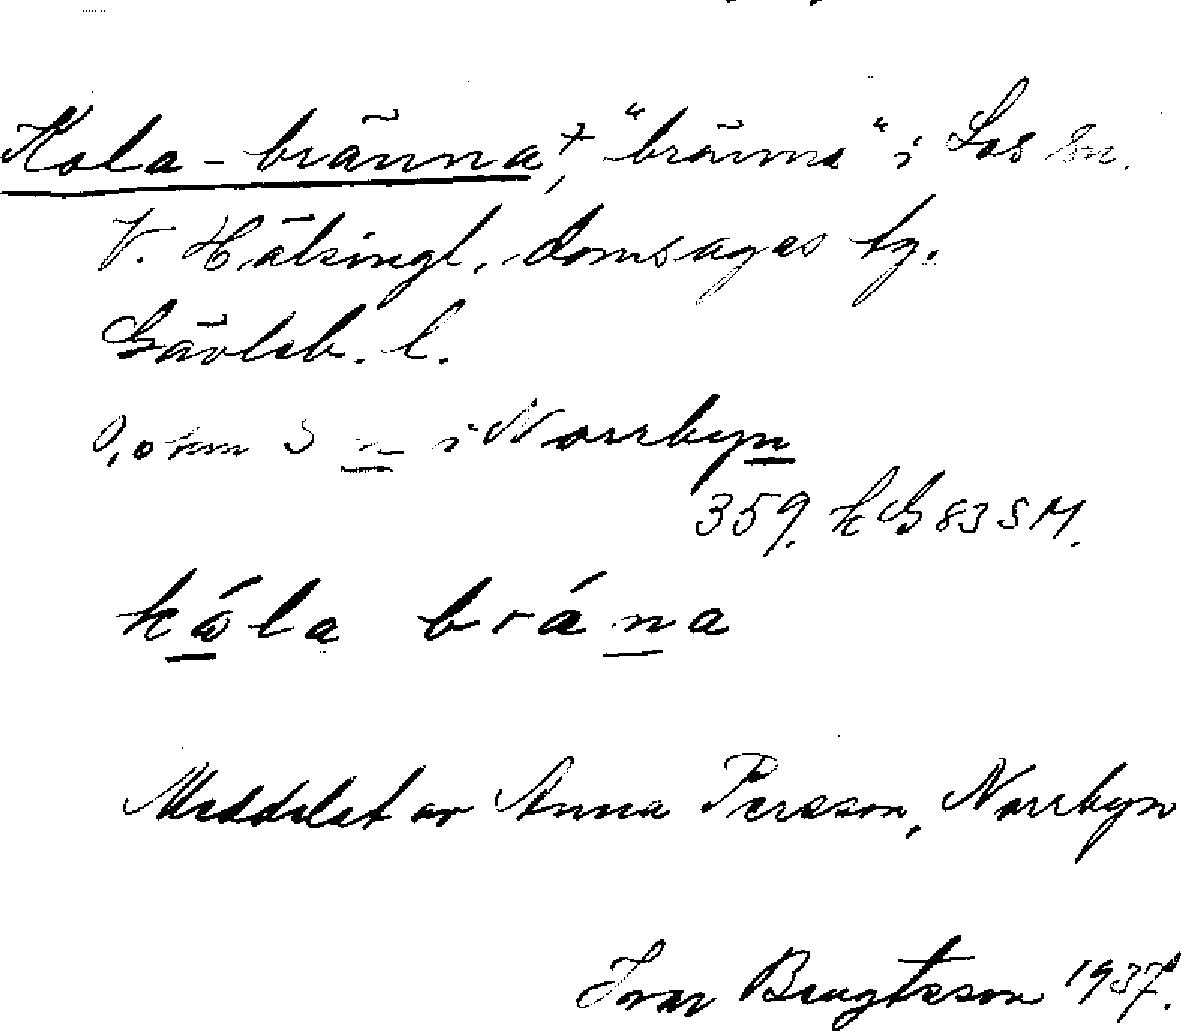 Kola-bränna+, "bränna" i Los sn.
V. Hälsingl. domsagas tg.
Gävleb. l.
0,6 km S n i Norrbyn
359. k G 83 SM.
kåla brána
Meddelat av Anna Persson, Norrbyn
Ivar Bengtsson 1937.